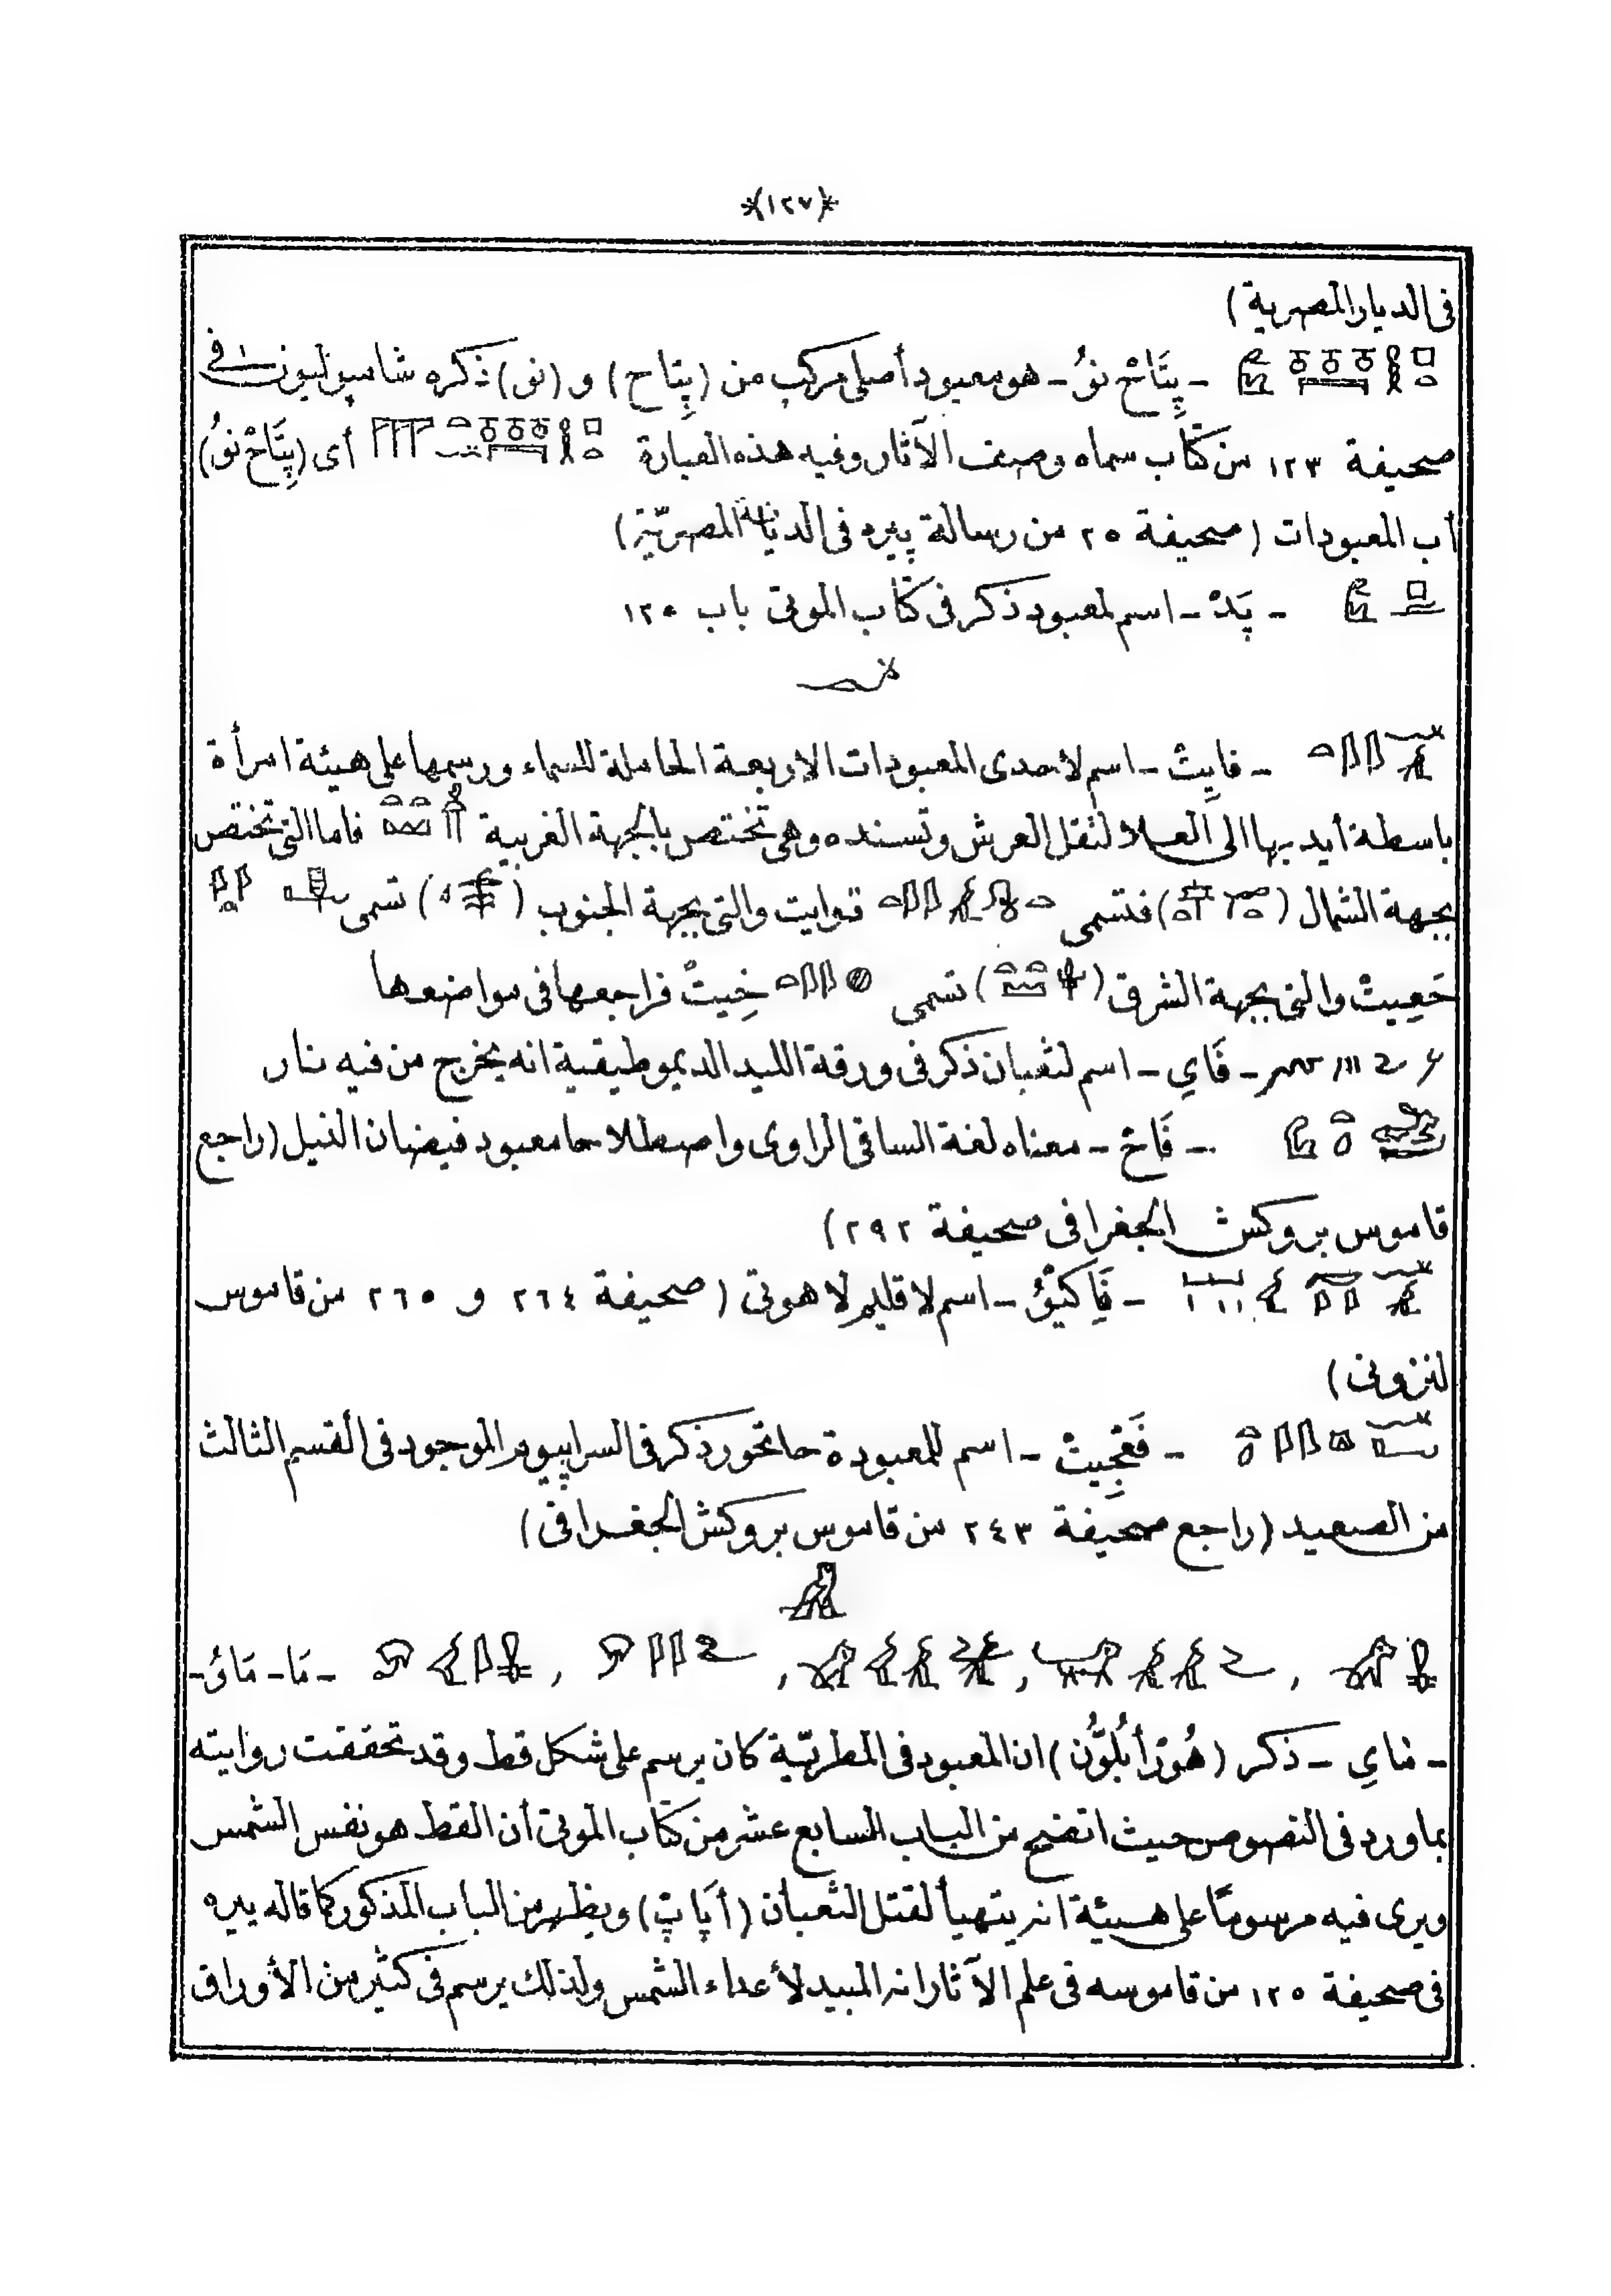 *(١٢٧)*
فى الديار المصرية)
– پِتَاحْ نوُ – هو معبود أصلى مركب من (پِتاح) و (نو) ذكره شامپوليون فى
صحيفة ١٢٣ من كتاب سماه وصف الآثار وفيه هذه العبارة أى (پِتَاحْ نوُ)
أب المعبودات (صحيفة ٢٥ من رسالة پيره فى الديانة المصرية)
– پَدْ – اسم لمعبود ذكر فى كتاب الموتى باب ١٢٥
– فايِتْ – اسم لاحدى المعبودات الاربعة الحاملة للسماء ورسمها على هيئة امرأة
باسطة أيديها الى العلا لثقل العرش وتسنده وهى تختص بالجهة الغربية فاما التى تختص
بجهة الشمال ( ) فتسمى توايت والتى بجهة الجنوب ( ) تسمى
حَعِيتْ والتى بجهة الشرق ( ) تسمى خِيتْ فراجعها فى مواضعها
– فَاىِ – اسم لثعبان ذكر فى ورقة الليد الديموطيقية انه يخرج من فيه نار
– فَاحْ – معناه لغة الساقى الراوى واصطلاحا معبود فيضان النيل (راجع
قاموس بروكش الجغرافى صحيفة ٢٩٢)
– فَاكيُوُ – اسم لاقليم لاهوتى (صحيفة ٢٦٤ و ٢٦٥ من قاموس
لنزونى)
– فَعْجِيتْ – اسم للمعبودة حاتحور ذكر فى السراپيوم الموجود فى القسم الثالث
من الصعيد (راجع صحيفة ٢٤٣ من قاموس بروكش الجغرافى)
, , , , – مَا – مَائُ –
– ماىِ – ذكر (هُورْأبُلُّون) ان المعبود فى المطريّة كان يرسم على شكل قط وقد تحققت روايته
بما ورد فى النصوص حيث اتضح من الباب السابع عشر من كتاب الموتى أن القط هو نفس الشمس
ويرى فيه مرسومًا على هيئة انه يتهيأ لقتل الثعبان (أپَاپْ) ويظهر من الباب المذكور كما قاله پيره
فى صحيفة ١٢٥ من قاموسه فى علم الآثار انه المبيد لأعداء الشمس ولذلك يرسم فى كثير من الأوراق